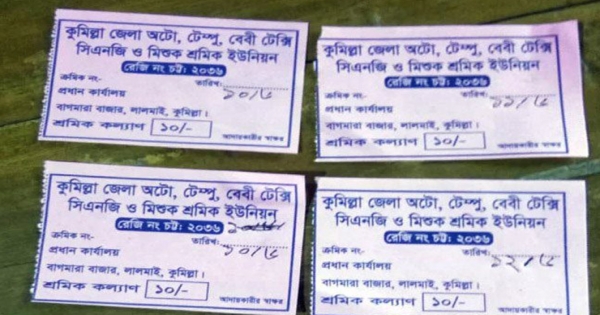 কুমিল্লা জেলা অটো, টেম্পু, বেবী টেক্সি
সিএনজি ও মিশুক শ্রমিক ইউনিয়ন
রেজি নং চট্ট: ২০৩৬
ক্রমিক নং- তারিখ: ১০/৬
প্রধান কার্যালয়
বাগমারা বাজার, লালমাই, কুমিল্লা।
শ্রমিক কল্যাণ ১০/- আদায়কারীর স্বাক্ষর
কুমিল্লা জেলা অটো, টেম্পু, বেবী টেক্সি
সিএনজি ও মিশুক শ্রমিক ইউনিয়ন
রেজি নং চট্ট: ২০৩৬
ক্রমিক নং- তারিখ: ১১/৬
প্রধান কার্যালয়
বাগমারা বাজার, লালমাই, কুমিল্লা।
শ্রমিক কল্যাণ ১০/- আদায়কারীর স্বাক্ষর
কুমিল্লা জেলা অটো, টেম্পু, বেবী টেক্সি
সিএনজি ও মিশুক শ্রমিক ইউনিয়ন
রেজি নং চট্ট: ২০৩৬
ক্রমিক নং- তারিখ: ১০/৬
প্রধান কার্যালয়
বাগমারা বাজার, লালমাই, কুমিল্লা।
শ্রমিক কল্যাণ ১০/- আদায়কারীর স্বাক্ষর
কুমিল্লা জেলা অটো, টেম্পু, বেবী টেক্সি
সিএনজি ও মিশুক শ্রমিক ইউনিয়ন
রেজি নং চট্ট: ২০৩৬
ক্রমিক নং- তারিখ: ১২/৬
প্রধান কার্যালয়
বাগমারা বাজার, লালমাই, কুমিল্লা।
শ্রমিক কল্যাণ ১০/- আদায়কারীর স্বাক্ষর